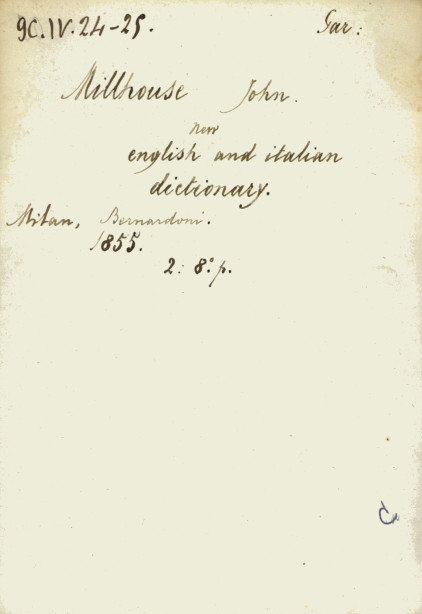 9C.IV.24-25. Gar:
Millhouse John.
new
english and italian
dictionary.
Milan, Bernardoni.
1855.
2: 8.° p.